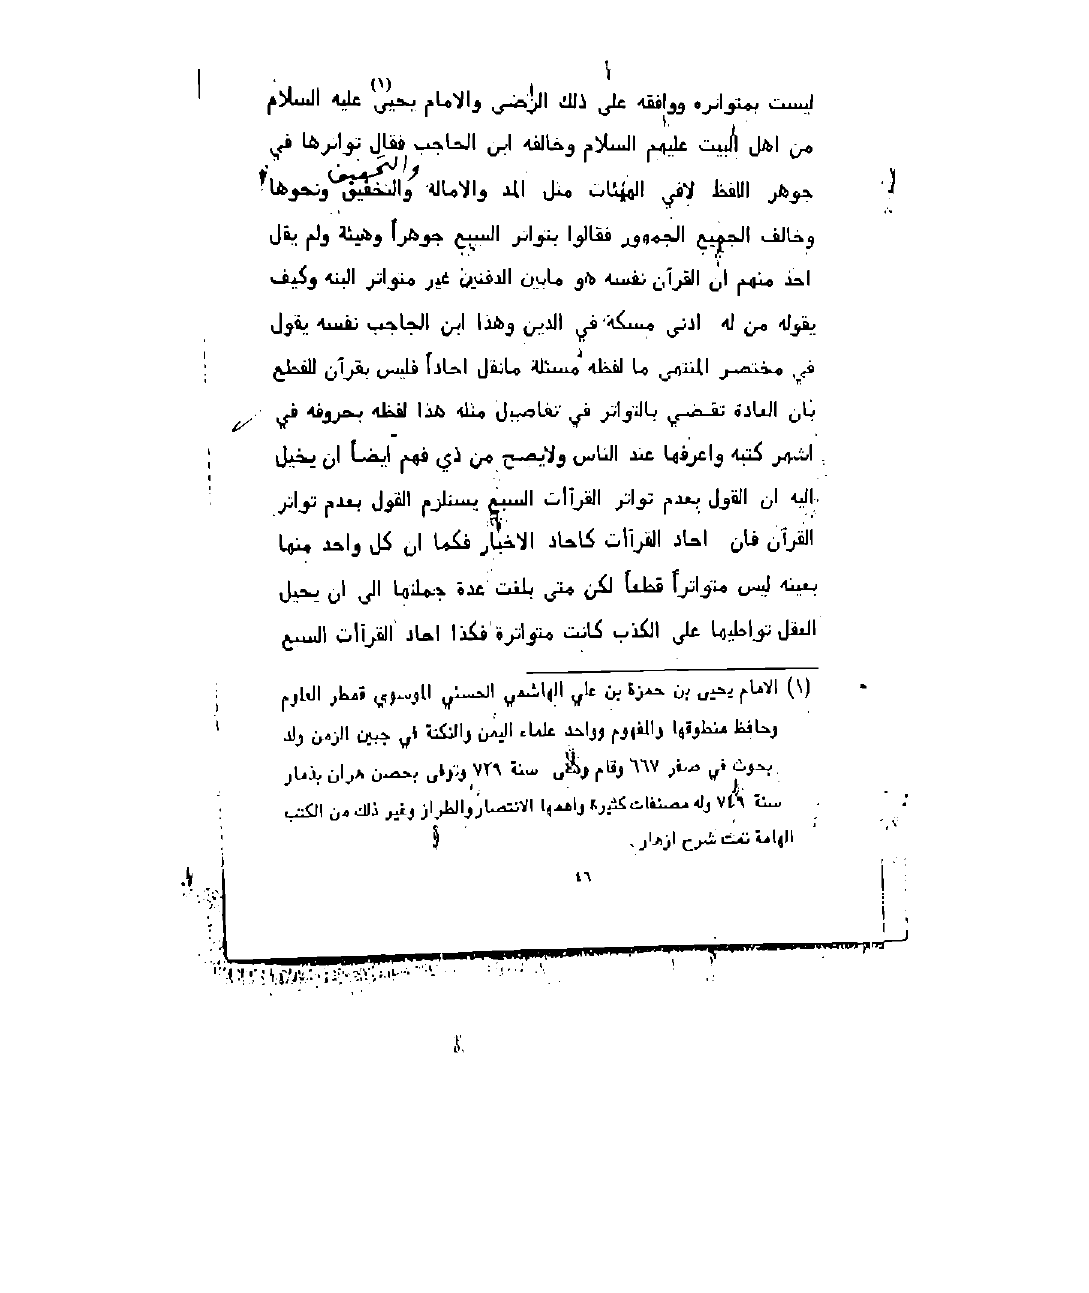 ليست بمتواتره ووافقه على ذلك الرضى والامام يحيى (١) عليه السلام
من اهل البيت عليهم السلام وخالفه ابن الحاجب فقال تواترها في
جوهر اللفظ لافي الهيئات مثل المد والامالة والتخفيق والتخفيف ونحوها
وخالف الجميع الجمهور فقالوا بتواتر السبع جوهراً وهيئة ولم يقل
احد منهم ان القرآن نفسه هو مابين الدفتين غير متواتر البته وكيف
يقوله من له ادنى مسكة في الدين وهذا ابن الحاجب نفسه يقول
في مختصر المنتهى ما لفظه مسئلة مانقل احاداً فليس بقرآن للقطع
بان العادة تقضي بالتواتر في تفاصيل مثله هذا لفظه بحروفه في
اشهر كتبه واعرفها عند الناس ولايصح من ذي فهم ايضاً ان يخيل
اليه ان القول بعدم تواتر القرآآت السبع يستلزم القول بعدم تواتر
القرآن فان احاد القرآآت كاحاد الاخبار فكما ان كل واحد منها
بعينه ليس متواتراً قطعاً لكن متى بلغت عدة جملتها الى ان يحيل
العقل تواطيها على الكذب كانت متواترة فكذا احاد القرآآت السبع
(١) الامام يحيى بن حمزة بن علي الهاشمي الحسني الموسوي قمطر العلوم
وحافظ منطوقها والمفهوم وواحد علماء اليمن والنكتة في جبين الزمن ولد
بحوث في صفر ٦٦٧ وقام سنة ٧٢٩ وتوفى بحصن هران بذمار
سنة ٧٤٩ وله مصنفات كثيرة واهمها الانتصار والطراز وغير ذلك من الكتب
الهامة تمت شرح ازهار.
٤٦